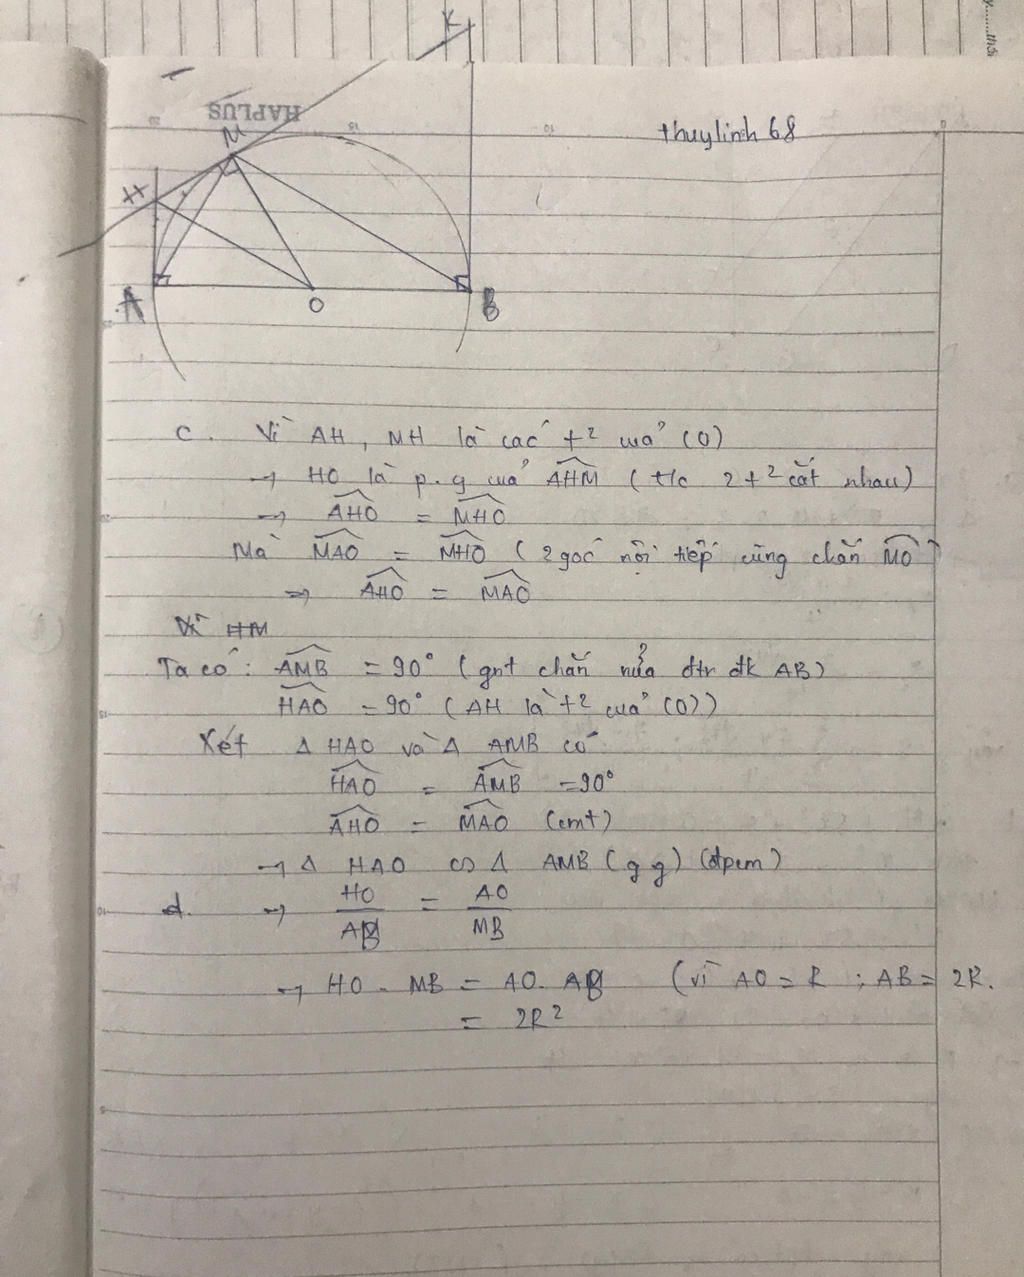 K
HAPLUS
M
thuylinh 68
H
A
O
B
c. Vì AH, MH là các t² của (O)
→ HO là p.g của AHM (t/c 2 t² cắt nhau)
→ AHO = MHO
Mà MAO = MHO (2 góc nội tiếp cùng chắn MO)
⇒ AHO = MAO
Vì HM
Ta có: AMB = 90° (gnt chắn nửa đtr đk AB)
HAO = 90° (AH là t² của (O))
Xét Δ HAO và Δ AMB có
HAO = AMB = 90°
AHO = MAO (cmt)
→ Δ HAO ∽ Δ AMB (g g) (đpcm)
d. → HO/AB = AO/MB
→ HO . MB = AO. AB (vì AO = R ; AB = 2R.
= 2R²